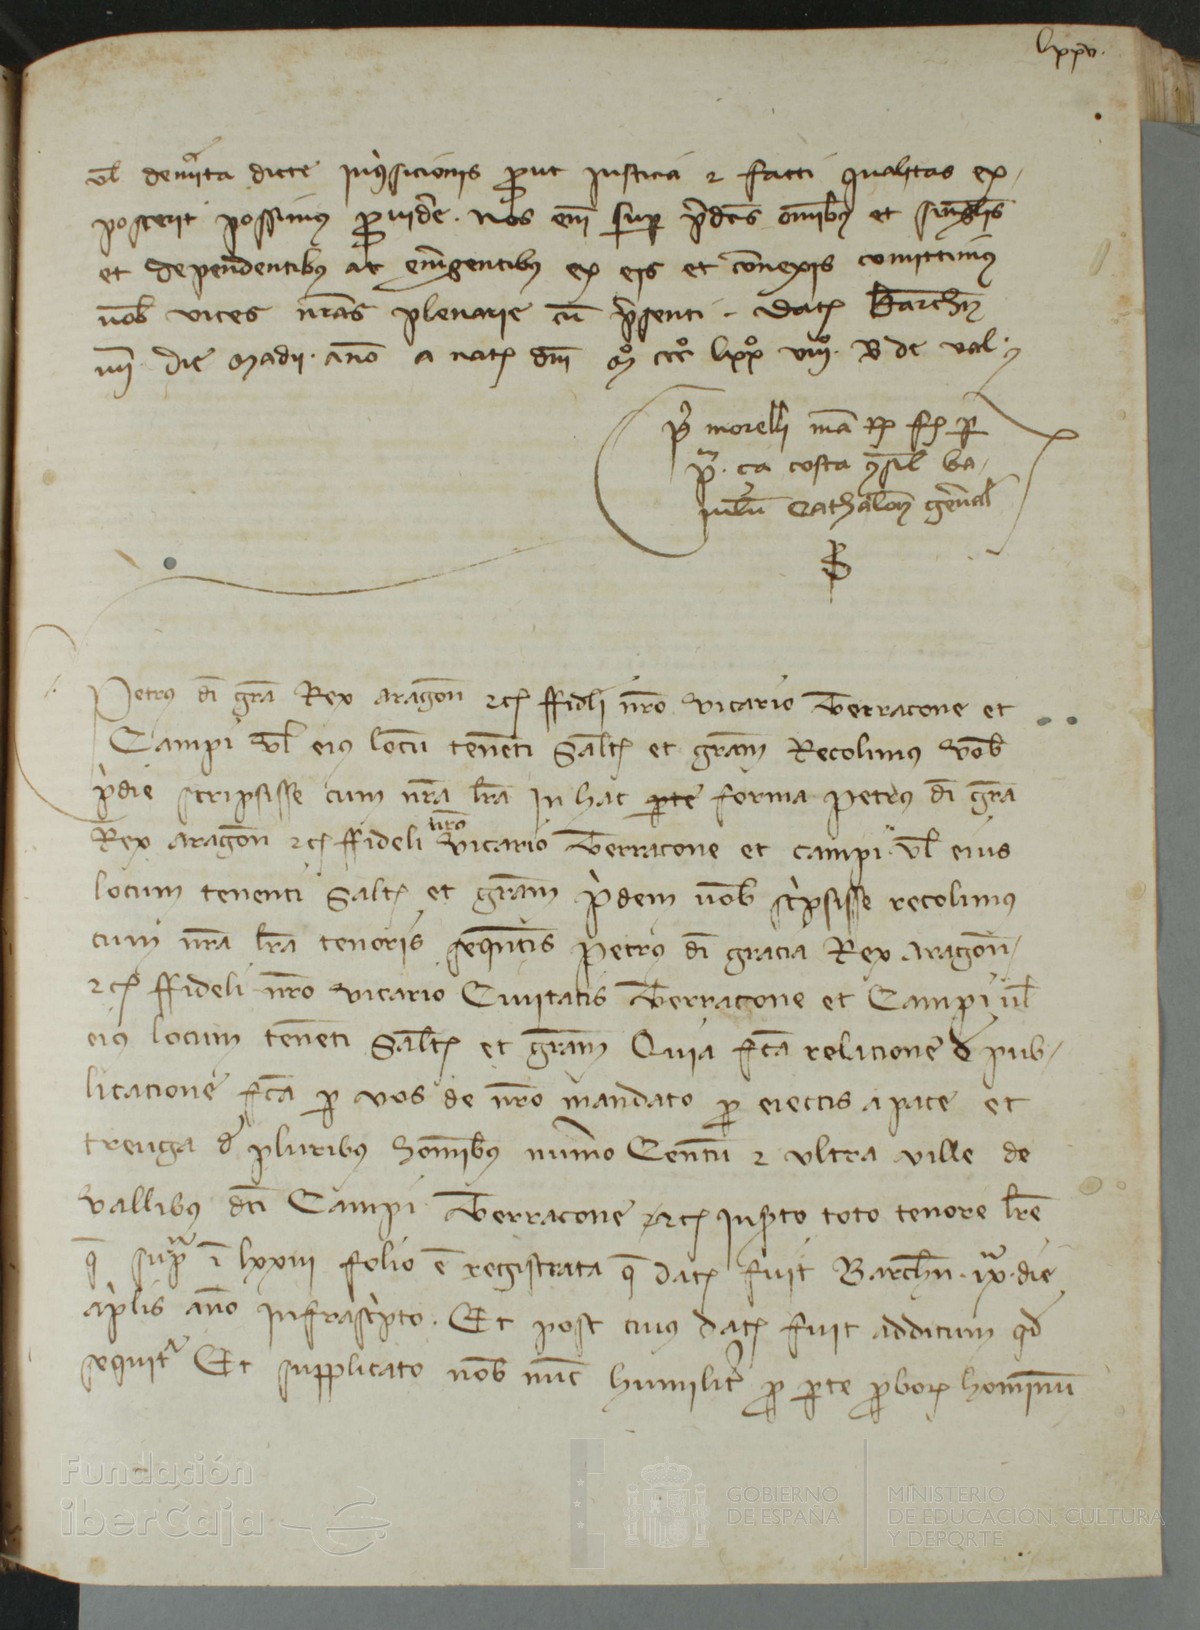 lxxv.
vel deuicta dicte inquisicionis prout iusticia et facti qualitas ex-
poscerit possimus prouidere. Nos enim super predictis omnibus et singulis
et dependentibus ac emergentibus ex eis et connexis comittimus
uobis vices nostras plenarie cum presenti. Datum Barchinone
IIII die Madii anno a natiuitate domini Mº CCCº LXXº VIIIº. B de Val
morelli mandato Regis facto per
P. ça costa consiliarium ba-
iulum Cathalonie generalem
Petrus dei gracia Rex Aragonum etc ffideli nostro vicario Terracone et
Campi vel eius locum tenenti Salutem et graciam Recolimus vobis
pridie scripsisse cum nostra littera in hac parte forma Petrus dei gracia
Rex Aragonum etc ffideli nostro vicario Terracone et campi vel eius
locum tenenti Salutem et graciam pridem uobis scripsisse recolimus
cum nostra littera tenoris sequentis Petrus dei gracia Rex Aragonum
etc ffideli nostro vicario Ciuitatis Terracone et Campi uel
eius locum tenenti Salutem et graciam Quia facta relacione de pub-
licacione facta per vos de nostro mandato pro eiectis a pace et
treuga de pluribus hominibus numero Centum et ultra ville de
Vallibus dicti Campi Terracone etc inserto toto tenore littere
que supra in lxxiii folio est registrata que data fuit Barchinone ix die
aprilis anno infrascripto. Et post cuius datam fuit additum quod
sequitur Et supplicato nobis nunc humiliter pro parte proborum hominum
Fundación
iberCaja
GOBIERNO
DE ESPAÑA
MINISTERIO
DE EDUCACIÓN, CULTURA
Y DEPORTE